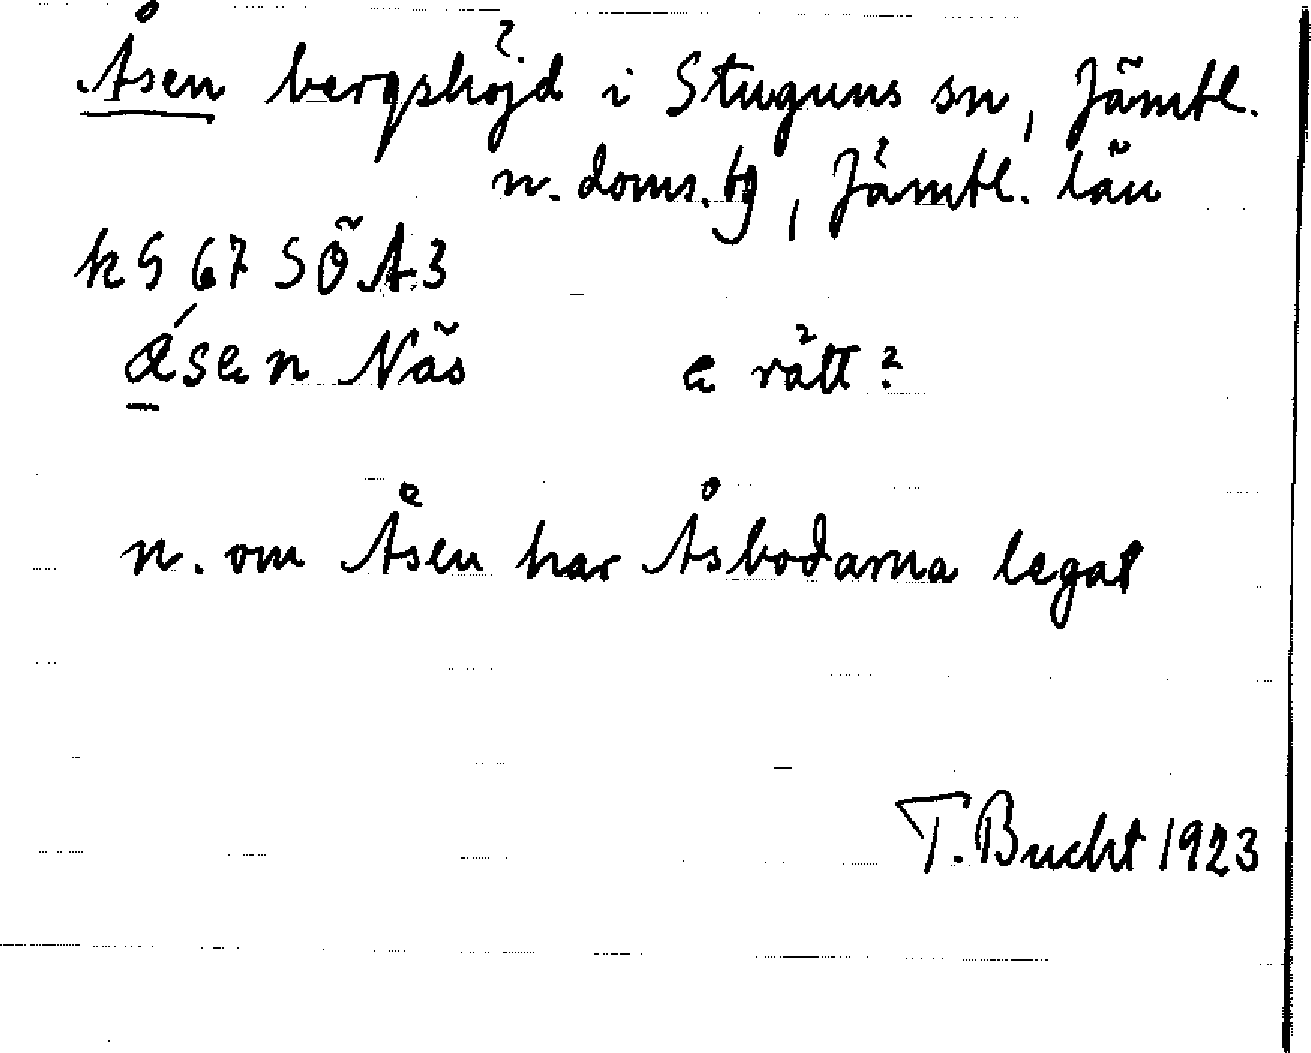 Åsen bergshöjd i Stuguns sn, Jämtl.
n. doms. tg, Jämtl. län
k G 67 SÖ A3
ɑ́sen Näs e rätt?
n. om Åsen har Åsbodarna legat
T. Bucht 1923